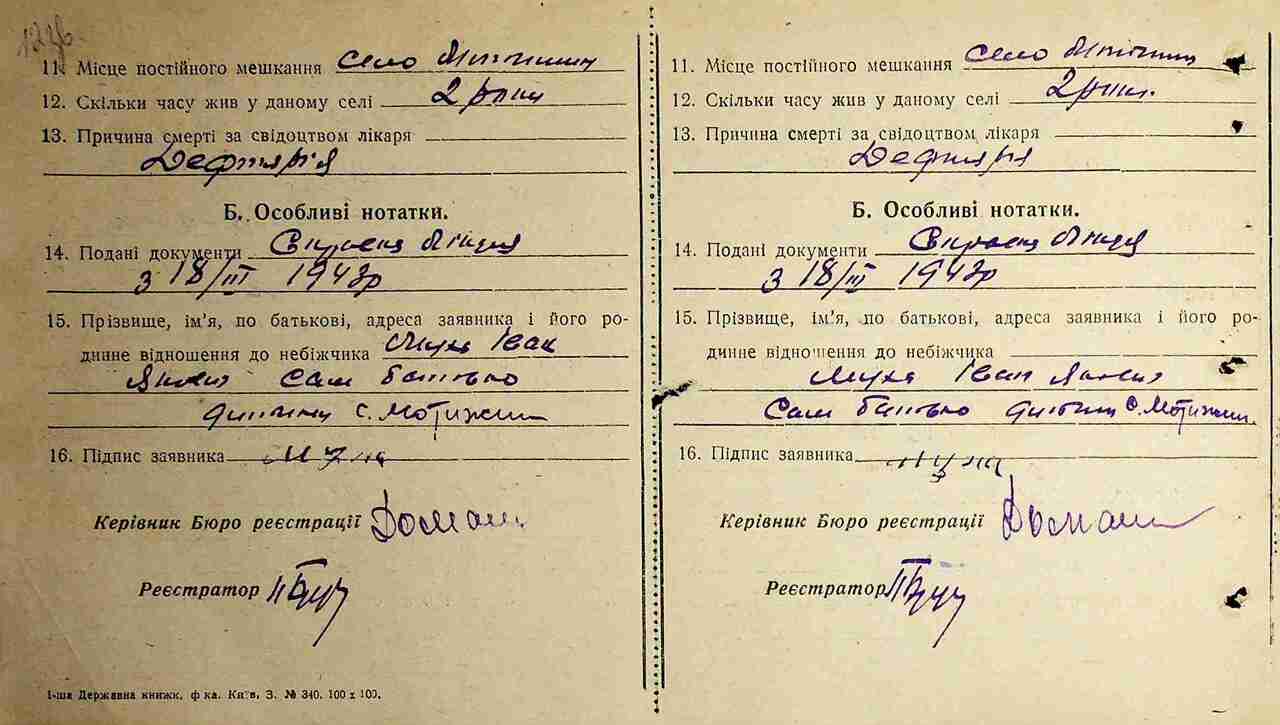 11. Місце постійного мешкання село Мотижин
12. Скільки часу жив у даному селі 2 роки
13. Причина смерті за свідоцтвом лікаря
Дефтярія
Б. Особливі нотатки.
14. Подані документи Справка лікаря
з 18/III 1943р
15. Прізвище, ім’я, по батькові, адреса заявника і його ро-
динне відношення до небіжчика Муха Іван
сам батько
дитини с. Мотижин
16. Підпис заявника Муха
Керівник Бюро реєстрації Домаш
Реєстратор
1-ша Державна книжк. ф-ка. Київ, З. № 340. 100 x 100.
11. Місце постійного мешкання село Мотижин
12. Скільки часу жив у даному селі 2 роки.
13. Причина смерті за свідоцтвом лікаря
Дефтярія
Б. Особливі нотатки.
14. Подані документи Справка лікаря
з 18/III 1943р
15. Прізвище, ім’я, по батькові, адреса заявника і його ро-
динне відношення до небіжчика
Муха Іван
сам батько дитини с. Мотижин
16. Підпис заявника Муха
Керівник Бюро реєстрації Домаш
Реєстратор